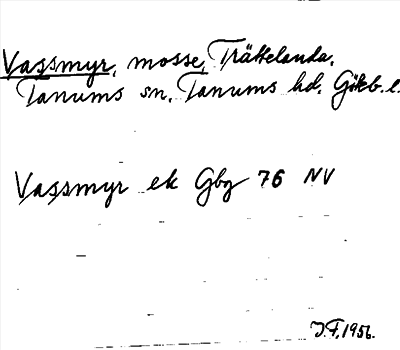 Vassmyr, mosse, Trättelanda,
Tanums sn, Tanums hd, Göteb. l.
Vassmyr ek Gbg 76 NV
J.F. 1956.